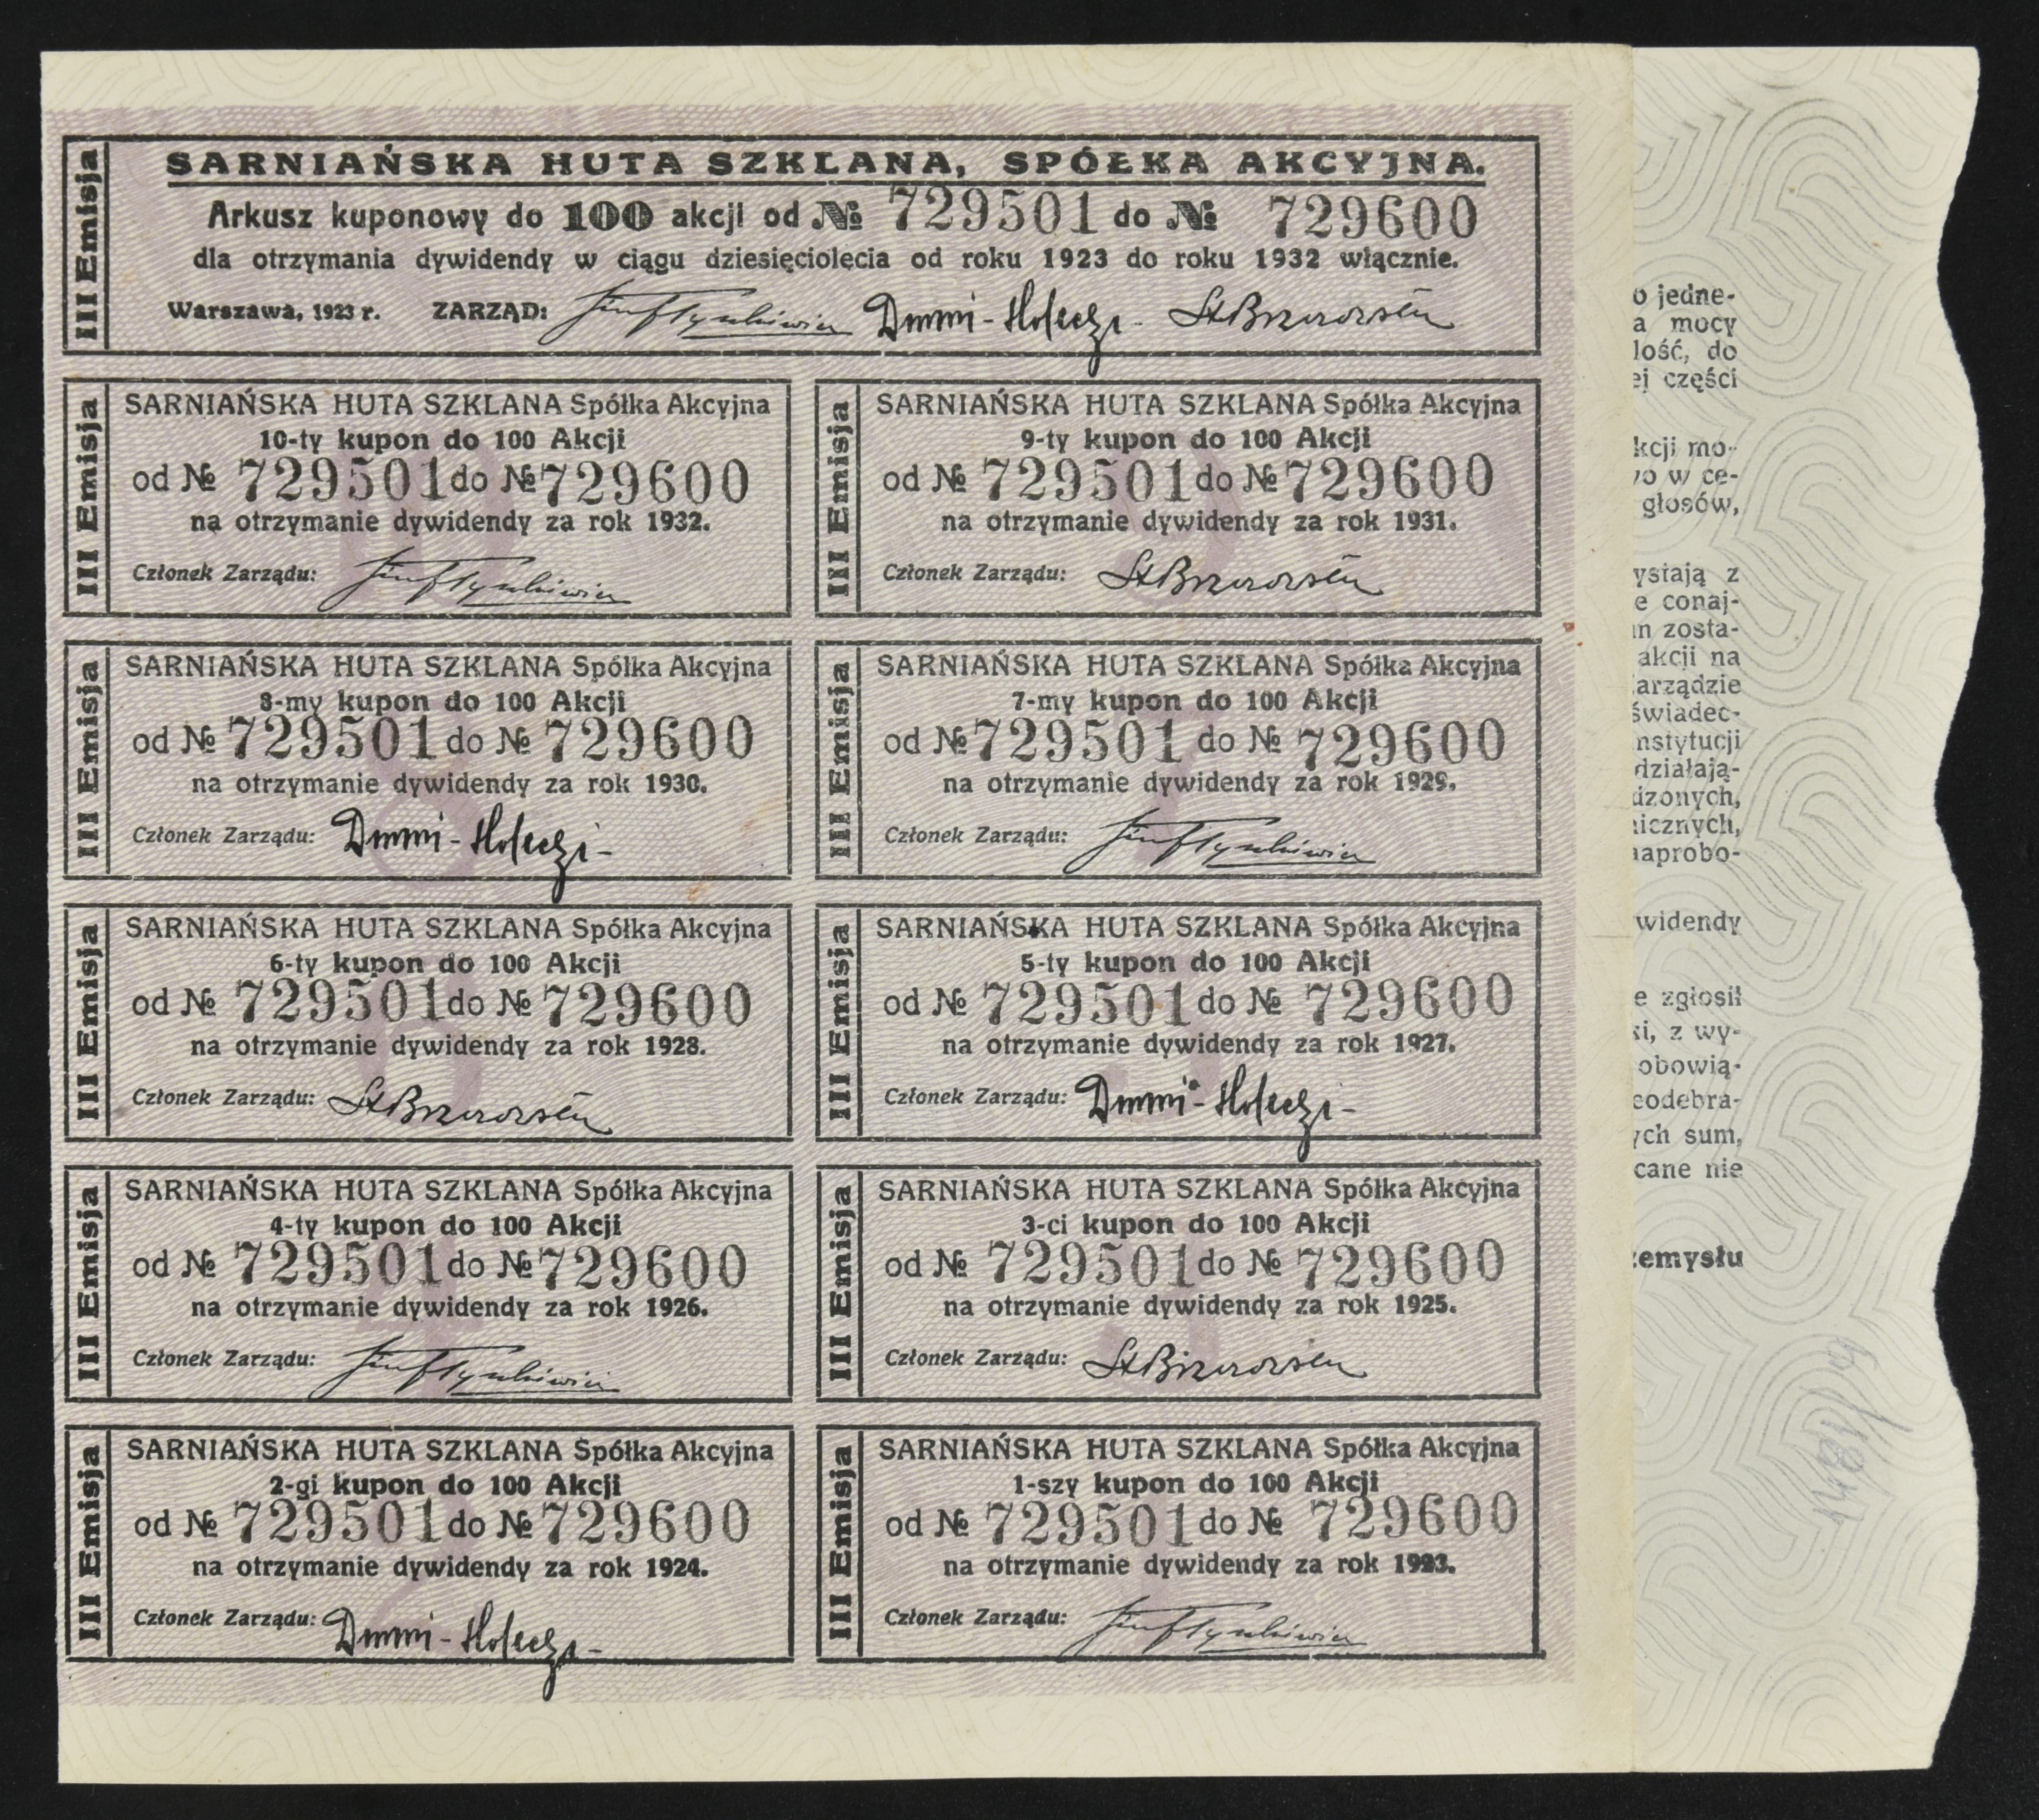 III Emisja
SARNIAŃSKA HUTA SZKLANA, SPÓŁKA AKCYJNA.
Arkusz kuponowy do 100 akcji od № 729501 do № 729600
dla otrzymania dywidendy w ciągu dziesięciolecia od roku 1923 do roku 1932 włącznie.
Warszawa, 1923 r. ZARZĄD:
III Emisja
SARNIAŃSKA HUTA SZKLANA Spółka Akcyjna
10-ty kupon do 100 Akcji
od № 729501 do № 729600
na otrzymanie dywidendy za rok 1932.
Członek Zarządu:
III Emisja
SARNIAŃSKA HUTA SZKLANA Spółka Akcyjna
9-ty kupon do 100 Akcji
od № 729501 do № 729600
na otrzymanie dywidendy za rok 1931.
Członek Zarządu:
III Emisja
SARNIAŃSKA HUTA SZKLANA Spólka Akcyjna
8-my kupon do 100 Akcji
od № 729501 do № 729600
na otrzymanie dywidendy za rok 1930.
Członek Zarządu:
III Emisja
SARNIAŃSKA HUTA SZKLANA Spółka Akcyjna
7-my kupon do 100 Akcji
od № 729501 do № 729600
na otrzymanie dywidendy za rok 1929.
Członek Zarządu:
III Emisja
SARNIAŃSKA HUTA SZKLANA Spółka Akcyjna
6-ty kupon do 100 Akcji
od № 729501 do № 729600
na otrzymanie dywidendy za rok 1928.
Członek Zarządu:
III Emisja
SARNIAŃSKA HUTA SZKLANA Spółka Akcyjna
5-ty kupon do 100 Akcji
od № 729501 do № 729600
na otrzymanie dywidendy za rok 1927.
Członek Zarządu:
III Emisja
SARNIAŃSKA HUTA SZKLANA Spółka Akcyjna
4-ty kupon do 100 Akcji
od № 729501 do № 729600
na otrzymanie dywidendy za rok 1926.
Członek Zarządu:
III Emisja
SARNIAŃSKA HUTA SZKLANA Spółka Akcyjna
3-ci kupon do 100 Akcji
od № 729501 do № 729600
na otrzymanie dywidendy za rok 1925.
Członek Zarządu:
III Emisja
SARNIAŃSKA HUTA SZKLANA Spółka Akcyjna
2-gi kupon do 100 Akcji
od № 729501 do № 729600
na otrzymanie dywidendy za rok 1924.
Członek Zarządu:
III Emisja
SARNIAŃSKA HUTA SZKLANA Spółka Akcyjna
1-szy kupon do 100 Akcji
od № 729501 do № 729600
na otrzymanie dywidendy za rok 1923.
Członek Zarządu:
o jedne-
a mocy
lość, do
ej części
kcji mo-
wo w ce-
głosów,
ystają z
e conaj-
m zosta-
akcji na
arządzie
świadec-
nstytucji
działają-
dzonych,
icznych,
aprobo-
widendy
e zgłosił
ki, z wy-
obowią-
eodebra-
ych sum,
cane nie
zemysłu